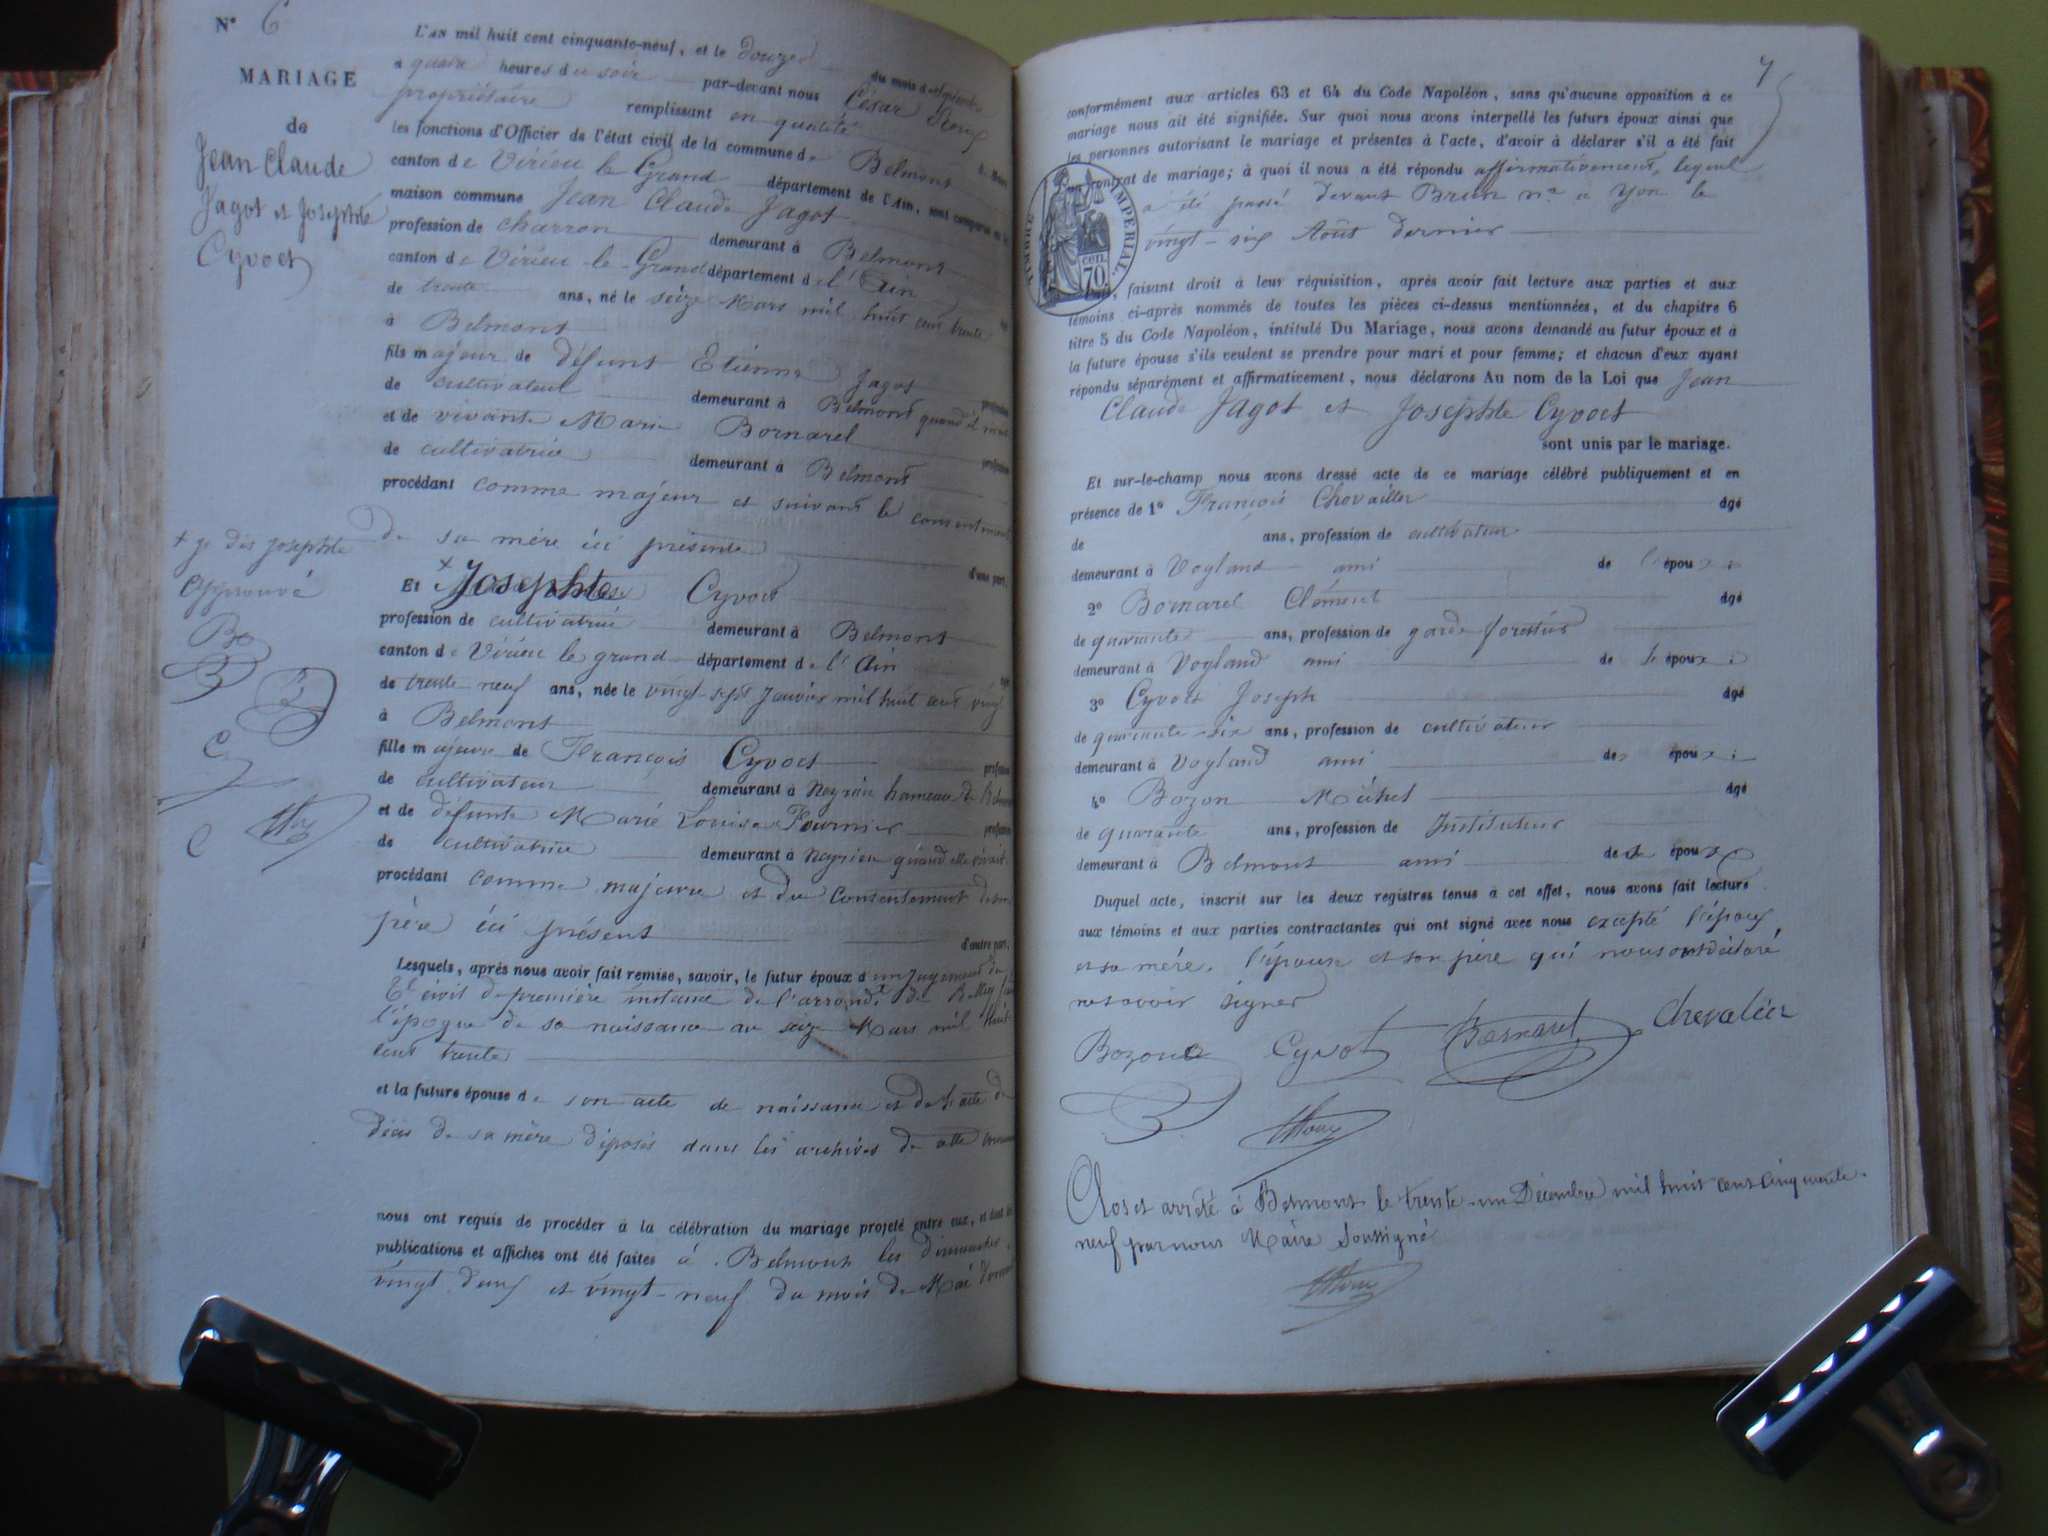 N° 6
MARIAGE
de
Jean Claude
Jagot et Josephte
Cyvoct
L'an mil huit cent cinquante-neuf, et le douze du mois de
a quatre heures du soir par-devant nous César Roux
propriétaire remplissant en qualité de Maire
les fonctions d'Officier de l'état civil de la commune de Belmont
canton de Virieu le Grand département de l'Ain, sont comparus en la
maison commune Jean Claude Jagot
profession de charron demeurant à Belmont
canton de Virieu-le-Grand département de l'Ain
de trente ans, né le seize Mars mil huit cent trente
à Belmont
fils majeur de défunt Etienne Jagot profession
de cultivateur demeurant à Belmont quand il vivait
et de vivante Marie Bornarel profession
de cultivatrice demeurant à Belmont
procédant comme majeur et suivant le consentement
de sa mère ici présente
d'une part,
+ je dis Josephte
Approuvé
B
B
B
C
C
Et + Josephte Cyvoct
profession de cultivatrice demeurant à Belmont
canton de Virieu le grand département de l'Ain âgée
de trente neuf ans, née le vingt-sept Janvier mil huit cent vingt
à Belmont
fille majeure de François Cyvoct profession
de cultivateur demeurant à Neyrieu hameau de Belmont
et de défunte Marie Louise Fournier profession
de cultivatrice demeurant à Neyrieu quand elle vivait
procédant comme majeure et du consentement de son
père ici présent
d'autre part.
Lesquels, après nous avoir fait remise, savoir, le futur époux d'un jugement du
Tal civil de première instance de l'arrondt de Belley
l'époque de sa naissance au seize Mars mil huit
cent trente
et la future épouse de son acte de naissance et de l'acte de
décès de sa mère déposés dans les archives de cette commune
nous ont requis de procéder à la célébration du mariage projeté entre eux, et dont les
publications et affiches ont été faites à Belmont les dimanches
vingt deux et vingt-neuf du mois de Mai dernier
7
conformément aux articles 63 et 64 du Code Napoléon, sans qu'aucune opposition à ce
mariage nous ait été signifiée. Sur quoi nous avons interpellé les futurs époux ainsi que
les personnes autorisant le mariage et présentes à l'acte, d'avoir à déclarer s'il a été fait
un contrat de mariage; à quoi il nous a été répondu affirmativement, lequel
a été passé devant Brun nre a Yon le
vingt-six Août dernier
TIMBRE IMPÉRIAL
70 CEN.
Nous, faisant droit à leur réquisition, après avoir fait lecture aux parties et aux
témoins ci-après nommés de toutes les pièces ci-dessus mentionnées, et du chapitre 6
titre 5 du Code Napoléon, intitulé Du Mariage, nous avons demandé au futur époux et à
la future épouse s'ils veulent se prendre pour mari et pour femme; et chacun d'eux ayant
répondu séparément et affirmativement, nous déclarons Au nom de la Loi que Jean
Claude Jagot et Josephte Cyvoct
sont unis par le mariage.
Et sur-le-champ nous avons dressé acte de ce mariage célébré publiquement et en
présence de 1° François Chevailler âgé
de ans, profession de cultivateur
demeurant à Vogland ami de l'époux
2° Bornarel Clément âgé
de quarante ans, profession de garde forestier
demeurant à Vogland ami de l'époux
3° Cyvoct Joseph âgé
de quarante-six ans, profession de cultivateur
demeurant à Vogland ami des époux
4° Bozon Michel âgé
de quarante ans, profession de Instituteur
demeurant à Belmont ami des époux
Duquel acte, inscrit sur les deux registres tenus à cet effet, nous avons fait lecture
aux témoins et aux parties contractantes qui ont signé avec nous excepté l'époux
et sa mère, l'épouse et son père qui nous ont déclaré
ne savoir signer
Bozon Cyvot Bornarel Chevalier
Roux
Clos et arrêté à Belmont le trente-un Décembre mil huit cent cinquante
neuf par nous Maire soussigné
Roux